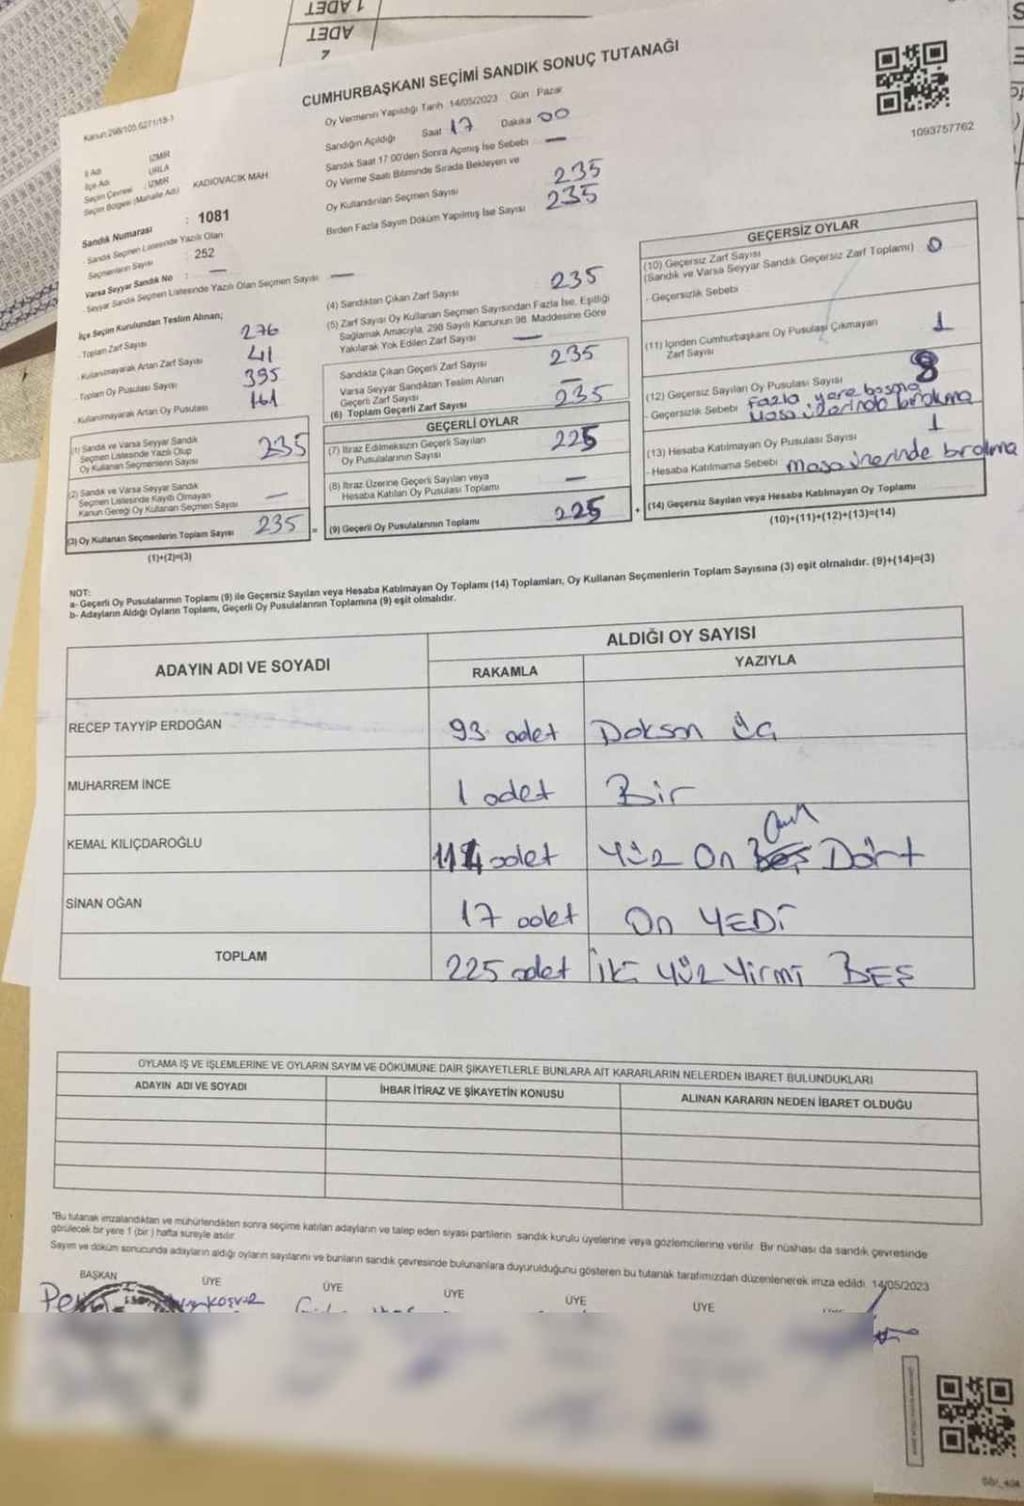 1 ADET
ADET
CUMHURBAŞKANI SEÇİMİ SANDIK SONUÇ TUTANAĞI
Kanun:298/105,6271/18-1
Oy Vermenin Yapıldığı Tarih 14/05/2023 Gün Pazar
Sandığın Açıldığı Saat 17 Dakika 00
Sandık Saat 17:00'den Sonra Açılmış İse Sebebi —
Oy Verme Saati Bitiminde Sırada Bekleyen ve
Oy Kullandırılan Seçmen Sayısı 235
Birden Fazla Sayım Döküm Yapılmış İse Sayısı 235
1093757762
İl Adı : İZMİR
İlçe Adı : URLA
Seçim Çevresi : İZMİR
Seçim Bölgesi (Mahalle Adı) KADIOVACIK MAH.
Sandık Numarası : 1081
- Sandık Seçmen Listesinde Yazılı Olan
Seçmenlerin Sayısı : 252
Varsa Seyyar Sandık No : —
- Seyyar Sandık Seçmen Listesinde Yazılı Olan Seçmen Sayısı —
İlçe Seçim Kurulundan Teslim Alınan;
- Toplam Zarf Sayısı 276
- Kullanılmayarak Artan Zarf Sayısı 41
- Toplam Oy Pusulası Sayısı 395
- Kullanılmayarak Artan Oy Pusulası 161
(1) Sandık ve Varsa Seyyar Sandık
Seçmen Listesinde Yazılı Olup
Oy Kullanan Seçmenlerin Sayısı 235
(2) Sandık ve Varsa Seyyar Sandık
Seçmen Listesinde Kayıtlı Olmayan
Kanun Gereği Oy Kullanan Seçmen Sayısı —
(3) Oy Kullanan Seçmenlerin Toplam Sayısı 235
(1)+(2)=(3)
(4) Sandıktan Çıkan Zarf Sayısı 235
(5) Zarf Sayısı Oy Kullanan Seçmen Sayısından Fazla İse, Eşitliği
Sağlamak Amacıyla, 298 Sayılı Kanunun 98. Maddesine Göre
Yakılarak Yok Edilen Zarf Sayısı —
Sandıkta Çıkan Geçerli Zarf Sayısı 235
Varsa Seyyar Sandıktan Teslim Alınan
Geçerli Zarf Sayısı —
(6) Toplam Geçerli Zarf Sayısı 235
GEÇERLİ OYLAR
(7) İtiraz Edilmeksizin Geçerli Sayılan
Oy Pusulalarının Sayısı 225
(8) İtiraz Üzerine Geçerli Sayılan veya
Hesaba Katılan Oy Pusulası Toplamı —
(9) Geçerli Oy Pusulalarının Toplamı 225
GEÇERSİZ OYLAR
(10) Geçersiz Zarf Sayısı
(Sandık ve Varsa Seyyar Sandık Geçersiz Zarf Toplamı) 0
- Geçersizlik Sebebi
(11) İçinden Cumhurbaşkanı Oy Pusulası Çıkmayan
Zarf Sayısı 1
(12) Geçersiz Sayılan Oy Pusulası Sayısı 8
- Geçersizlik Sebebi Fazla yere basma
Masa üzerinde bırakma
(13) Hesaba Katılmayan Oy Pusulası Sayısı 1
- Hesaba Katılmama Sebebi Masa üzerinde brakma
(14) Geçersiz Sayılan veya Hesaba Katılmayan Oy Toplamı
(10)+(11)+(12)+(13)=(14)
NOT:
a- Geçerli Oy Pusulalarının Toplamı (9) ile Geçersiz Sayılan veya Hesaba Katılmayan Oy Toplamı (14) Toplamları, Oy Kullanan Seçmenlerin Toplam Sayısına (3) eşit olmalıdır. (9)+(14)=(3)
b- Adayların Aldığı Oyların Toplamı, Geçerli Oy Pusulalarının Toplamına (9) eşit olmalıdır.
ADAYIN ADI VE SOYADI
ALDIĞI OY SAYISI
RAKAMLA YAZIYLA
RECEP TAYYİP ERDOĞAN 93 adet Doksan üç
MUHARREM İNCE 1 adet Bir
KEMAL KILIÇDAROĞLU 114 adet Yüz On Beş Dört
SİNAN OĞAN 17 adet On YEDİ
TOPLAM 225 adet İki yüz Yirmi BEŞ
OYLAMA İŞ VE İŞLEMLERİNE VE OYLARIN SAYIM VE DÖKÜMÜNE DAİR ŞİKAYETLERLE BUNLARA AİT KARARLARIN NELERDEN İBARET BULUNDUKLARI
ADAYIN ADI VE SOYADI İHBAR İTİRAZ VE ŞİKAYETİN KONUSU ALINAN KARARIN NEDEN İBARET OLDUĞU
"Bu tutanak imzalandıktan ve mühürlendikten sonra seçime katılan adayların ve talep eden siyasi partilerin sandık kurulu üyelerine veya gözlemcilerine verilir. Bir nüshası da sandık çevresinde
görülecek bir yere 1 (bir ) hafta süreyle asılır.
Sayım ve döküm sonucunda adayların aldığı oyların sayılarını ve bunların sandık çevresinde bulunanlara duyurulduğunu gösteren bu tutanak tarafımızdan düzenlenerek imza edildi. 14/05/2023
BAŞKAN ÜYE ÜYE ÜYE ÜYE ÜYE